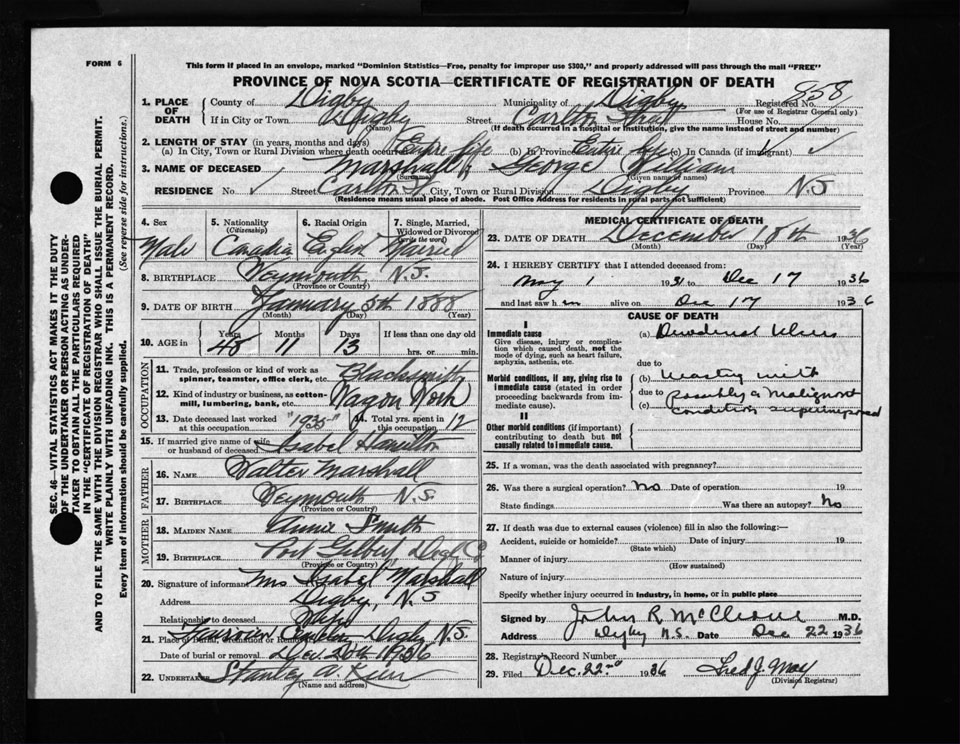 FORM 6
This form if placed in an envelope, marked "Dominion Statistics—Free, penalty for improper use $300," and properly addressed will pass through the mail "FREE"
PROVINCE OF NOVA SCOTIA—CERTIFICATE OF REGISTRATION OF DEATH
858
1. PLACE OF DEATH County of Digby Municipality of Digby Registered No.
(For use of Registrar General only)
If in City or Town Digby Street Carlton Street House No.
(Name) (If death occurred in a hospital or institution, give the name instead of street and number)
2. LENGTH OF STAY (in years, months and days)
(a) In City, Town or Rural Division where death occurred Entire life (b) In Province Entire life (c) In Canada (if immigrant) ✓
3. NAME OF DECEASED Marshall George William
(Surname) (Given name or names)
RESIDENCE No. ✓ Street Carlton St City, Town or Rural Division Digby Province N.S
(Residence means usual place of abode. Post Office Address for residents in rural parts not sufficient)
4. Sex Male
5. Nationality (Citizenship)
6. Racial Origin
7. Single, Married, Widowed or Divorced (write the word) Married
8. BIRTHPLACE Weymouth N.S.
(Province or County)
9. DATE OF BIRTH January 5th 1888
(Month) (Day) (Year)
10. AGE in Years 48 Months 11 Days 13 If less than one day old hrs. or min.
OCCUPATION
11. Trade, profession or kind of work as spinner, teamster, office clerk, etc. Blacksmith
12. Kind of industry or business, as cotton-mill, lumbering, bank, etc. Wagon Work
13. Date deceased last worked at this occupation 1935 14. Total yrs. spent in this occupation 12
15. If married give name of wife or husband of deceased Isabel Hamilton
FATHER
16. NAME Walter Marshall
17. BIRTHPLACE Weymouth N.S
(Province or County)
MOTHER
18. MAIDEN NAME Annie Smith
19. BIRTHPLACE Port Gilbert Digby Co
(Province or County)
20. Signature of informant Mrs Isabel Marshall
Address Digby, N.S
Relationship to deceased
21. Place of Burial, Cremation or Removal Cemetery Digby N.S.
Date of burial or removal Dec. 20th 1936
22. UNDERTAKER Stanley A.
(Name and address)
MEDICAL CERTIFICATE OF DEATH
23. DATE OF DEATH December 18th 1936
(Month) (Day) (Year)
24. I HEREBY CERTIFY that I attended deceased from:
May 1 1931 to Dec 17 1936
and last saw him alive on Dec 17 1936
CAUSE OF DEATH
I
Immediate cause
Give disease, injury or complication which caused death, not the mode of dying, such as heart failure, asphyxia, asthenia, etc.
(a) Duodenal Ulcer
due to
Morbid conditions, if any, giving rise to immediate cause (stated in order proceeding backwards from immediate cause).
(b) with
due to
(c) Possibly a Malignant condition superimposed
II
Other morbid conditions (if important) contributing to death but not causally related to immediate cause.
25. If a woman, was the death associated with pregnancy?
26. Was there a surgical operation? No Date of operation 19
State findings Was there an autopsy? No
27. If death was due to external causes (violence) fill in also the following:—
Accident, suicide or homicide? Date of injury 19
(State which)
Manner of injury
(How sustained)
Nature of injury
Specify whether injury occurred in industry, in home, or in public place
Signed by John R. M.D.
Address Digby N.S. Date Dec 22 1936
28. Registrar's Record Number
29. Filed Dec. 22nd 1936 Fred J. May
(Division Registrar)
SEC. 46—VITAL STATISTICS ACT MAKES IT THE DUTY
OF THE UNDERTAKER OR PERSON ACTING AS UNDER-
TAKER TO OBTAIN ALL THE PARTICULARS REQUIRED
IN THE "CERTIFICATE OF REGISTRATION OF DEATH"
AND TO FILE THE SAME WITH THE DIVISION REGISTRAR WHO SHALL ISSUE THE BURIAL PERMIT.
WRITE PLAINLY WITH UNFADING INK. THIS IS A PERMANENT RECORD.
Every item of information should be carefully supplied. (See reverse side for instructions.)